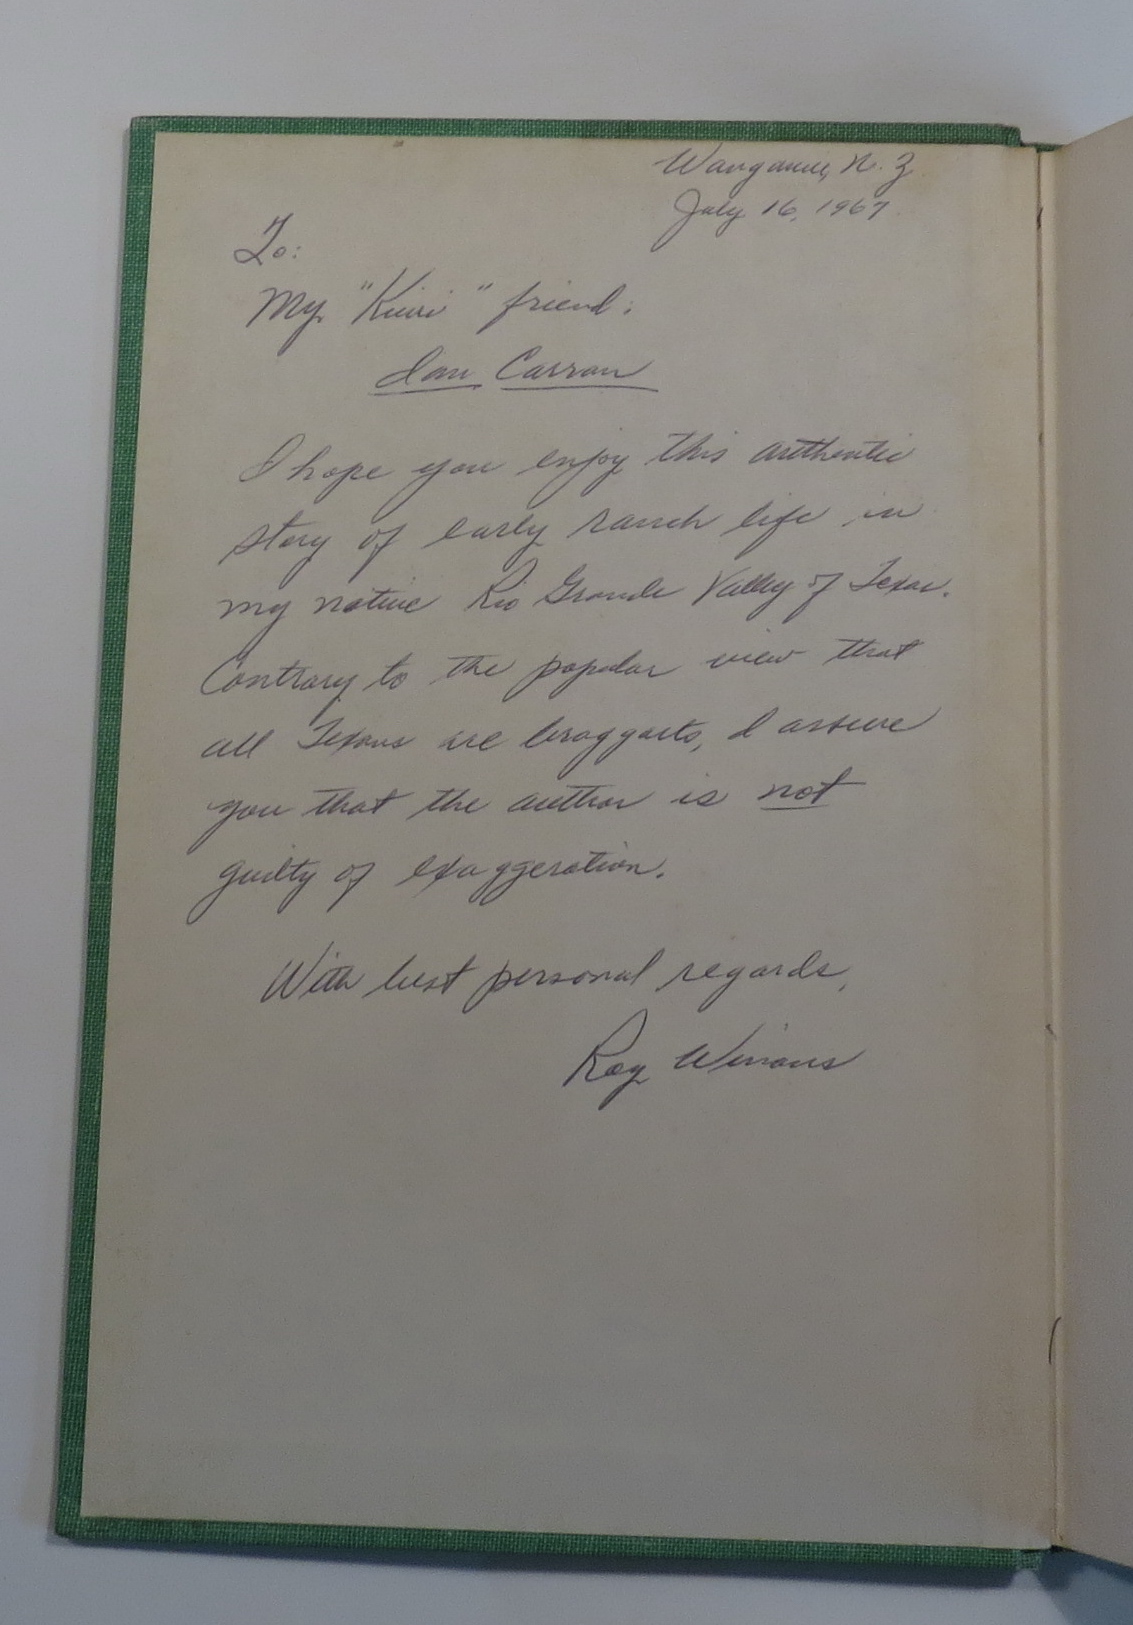 Wanganui, N. Z
July 16, 1967
To:
My "Kiwi" friend:
Ian Carran
I hope you enjoy this authentic
story of early ranch life in
my native Rio Grande Valley of Texas.
Contrary to the popular view that
all Texans are braggarts, I assure
you that the author is not
guilty of exaggeration.
With best personal regards,
Roy Winans